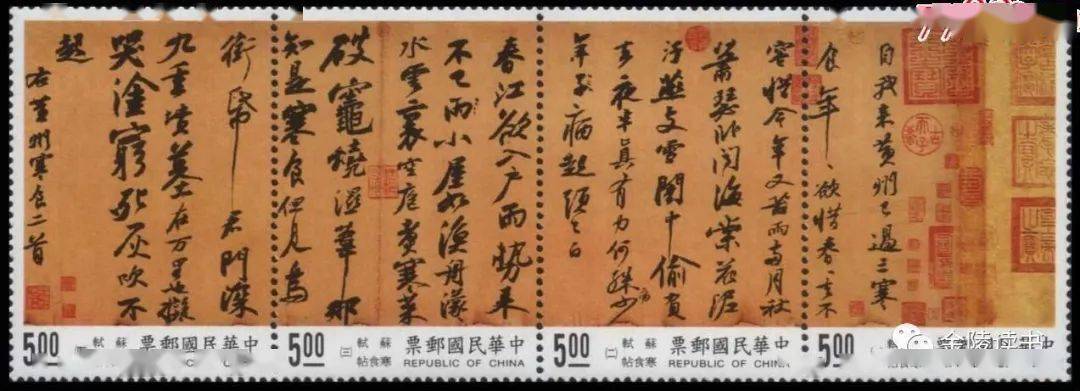 自我來黃州已過三寒
食年〻欲惜春〻去不
容惜今年又苦雨兩月秋
蕭瑟卧聞海棠花泥
汙燕支雪闇中偷負
去夜半真有力何殊少
年子病起頭已白
春江欲入戶雨勢來
不已雨小屋如漁舟濛〻
水雲裏空庖煮寒菜
破竈燒濕葦那
知是寒食但見烏
銜帋君門深
九重墳墓在万里也擬
哭塗窮死灰吹不
起
右黃州寒食二首
5.00
中華民國郵票
REPUBLIC OF CHINA
蘇軾寒食帖
(三)
5.00
中華民國郵票
REPUBLIC OF CHINA
蘇軾寒食帖
(二)
5.00
中華民國郵票
蘇軾
5.00
金陵读书